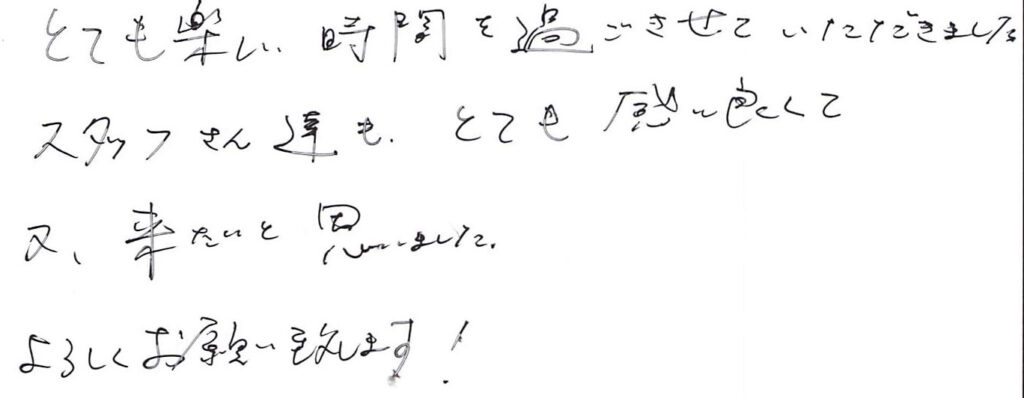 とても楽しい時間を過ごさせていただきました
スタッフさん達も、とても感じ良くて
又、来たいと思いました。
よろしくお願い致します!